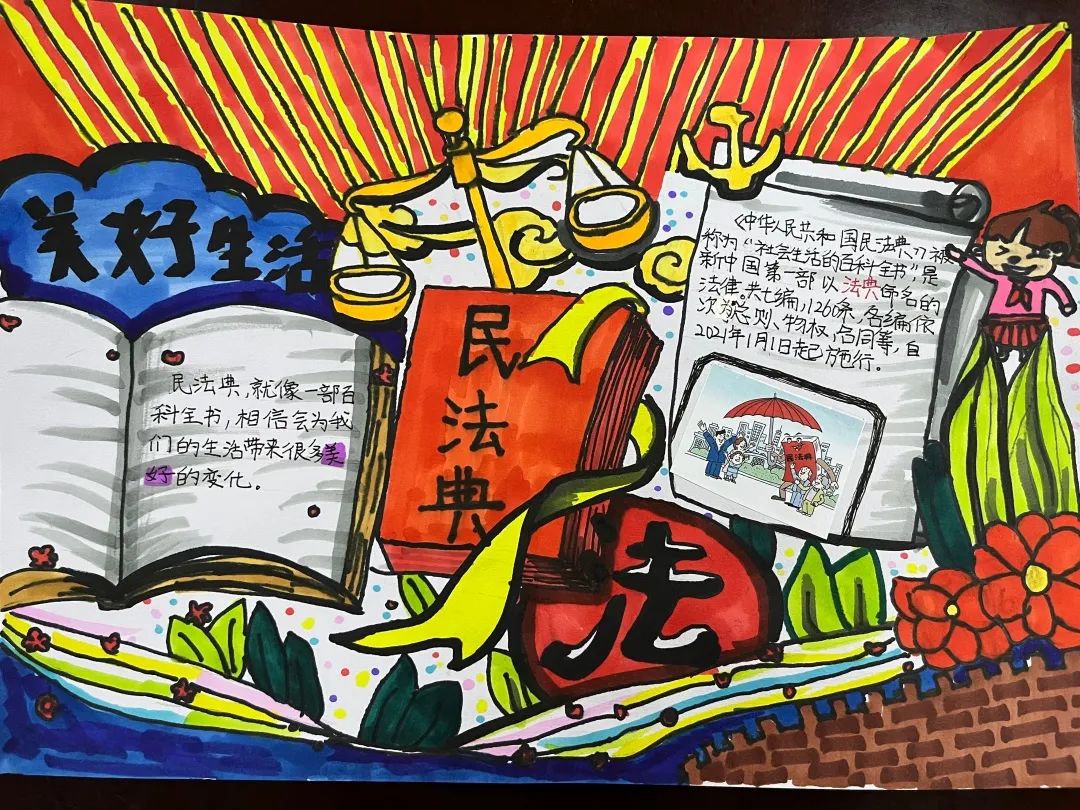 美好生活
民法典,就像一部百
科全书,相信会为我
们的生活带来很多美
好的变化。
民法典
法
《中华人民共和国民法典》被
称为“社会生活的百科全书”,是
新中国第一部以法典命名的
法律。共七编,1260条,各编依
次为总则、物权、合同等,自
2021年1月1日起施行。
民法典